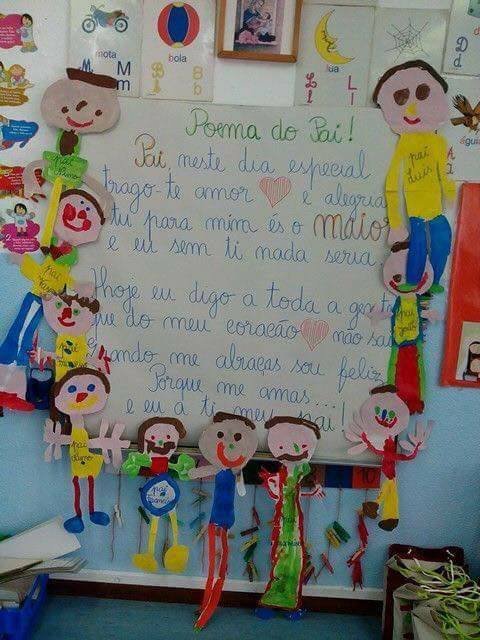 mota
M
m
bola
B
b
lua
L
l
D
d
águia
Poema do Pai!
Pai, neste dia especial
trago-te amor e alegria
tu para mim és o maior
e eu sem ti nada seria
Hoje eu digo a toda a gente
que do meu coração não sai
quando me abraças sou feliz
Porque me amas...
e eu a ti meu pai!
pai
pai
Luís
pai
João
pai
pai
pai
pai